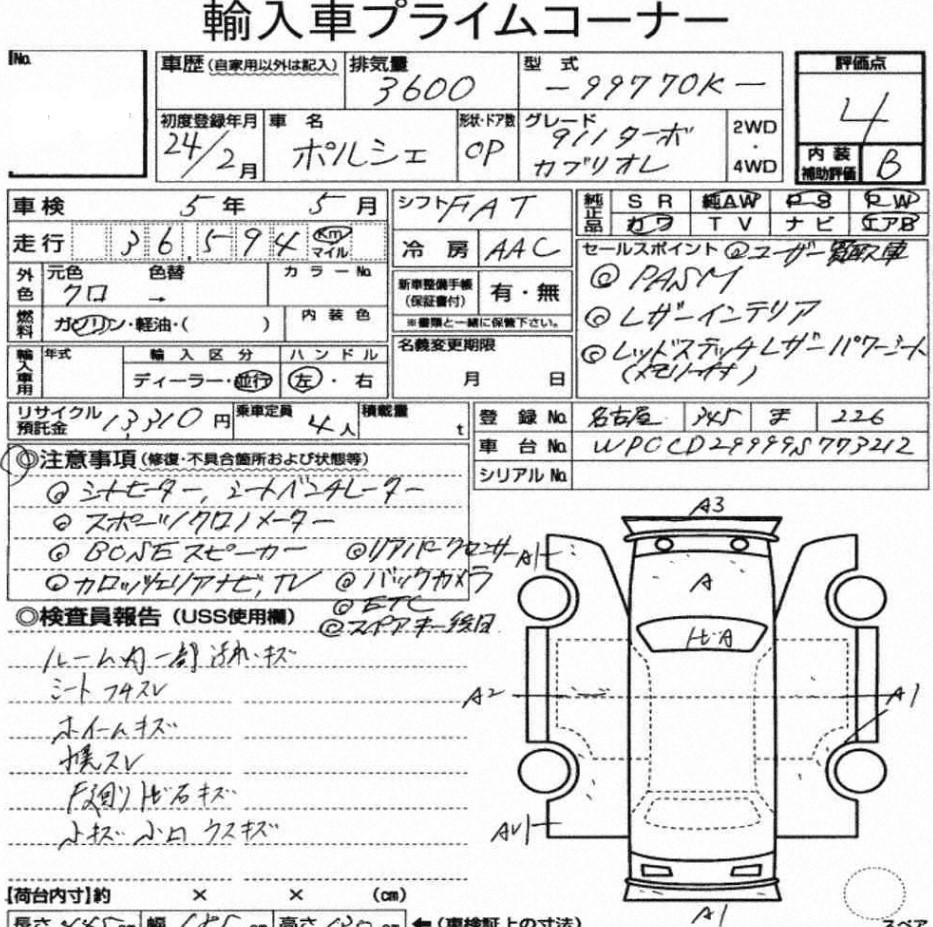 輸入車プライムコーナー
No.
車歴 (自家用以外は記入) 排気量 型式 評価点
3600 -99770K- 4
初度登録年月 車名 形状・ドア数 グレード
24/2月 ポルシェ OP 911ターボ カブリオレ 2WD・4WD
内装補助評価 B
車検 5年 5月 シフト FAT 純正品 SR 純AW PS PW
カワ TV ナビ エアB
走行 36,594 Km マイル 冷房 AAC
セールスポイント ◎ユーザー買取車
外色 元色 色替 カラーNo.
クロ →
新車整備手帳(保証書付) 有・無
◎PASM
※書類と一緒に保管下さい。
◎レザーインテリア
燃料 ガソリン・軽油・( ) 内装色
名義変更期限
月 日
◎レッドステッチレザーパワーシート
(メモリー付)
輸入車用 年式 輸入区分 ハンドル
ディーラー・並行 左・右
リサイクル預託金 13,310円 乗車定員 4人 積載量 t
登録No. 名古屋 345 ま 226
車台No. WPCCD29999S773212
シリアルNo.
◎注意事項 (修復・不具合箇所および状態等)
◎シートヒーター、シートベンチレーター
◎スポーツクロノメーター
◎BOSEスピーカー ◎リアパークセンサー
◎カロッツェリアナビ,TV ◎バックカメラ
◎ETC
◎スペアキー後日
◎検査員報告 (USS使用欄)
ルーム内一部汚れ・キズ
シートフチスレ
ホイールキズ
幌スレ
下廻り飛石キズ
小キズ 小凹 ウスキズ
A3
A1
A
トビA
A2
A1
AU1
A1
スペア
【荷台内寸】約 × × (cm)
長さ 445cm 幅 185cm 高さ 130cm ←(車検証上の寸法)